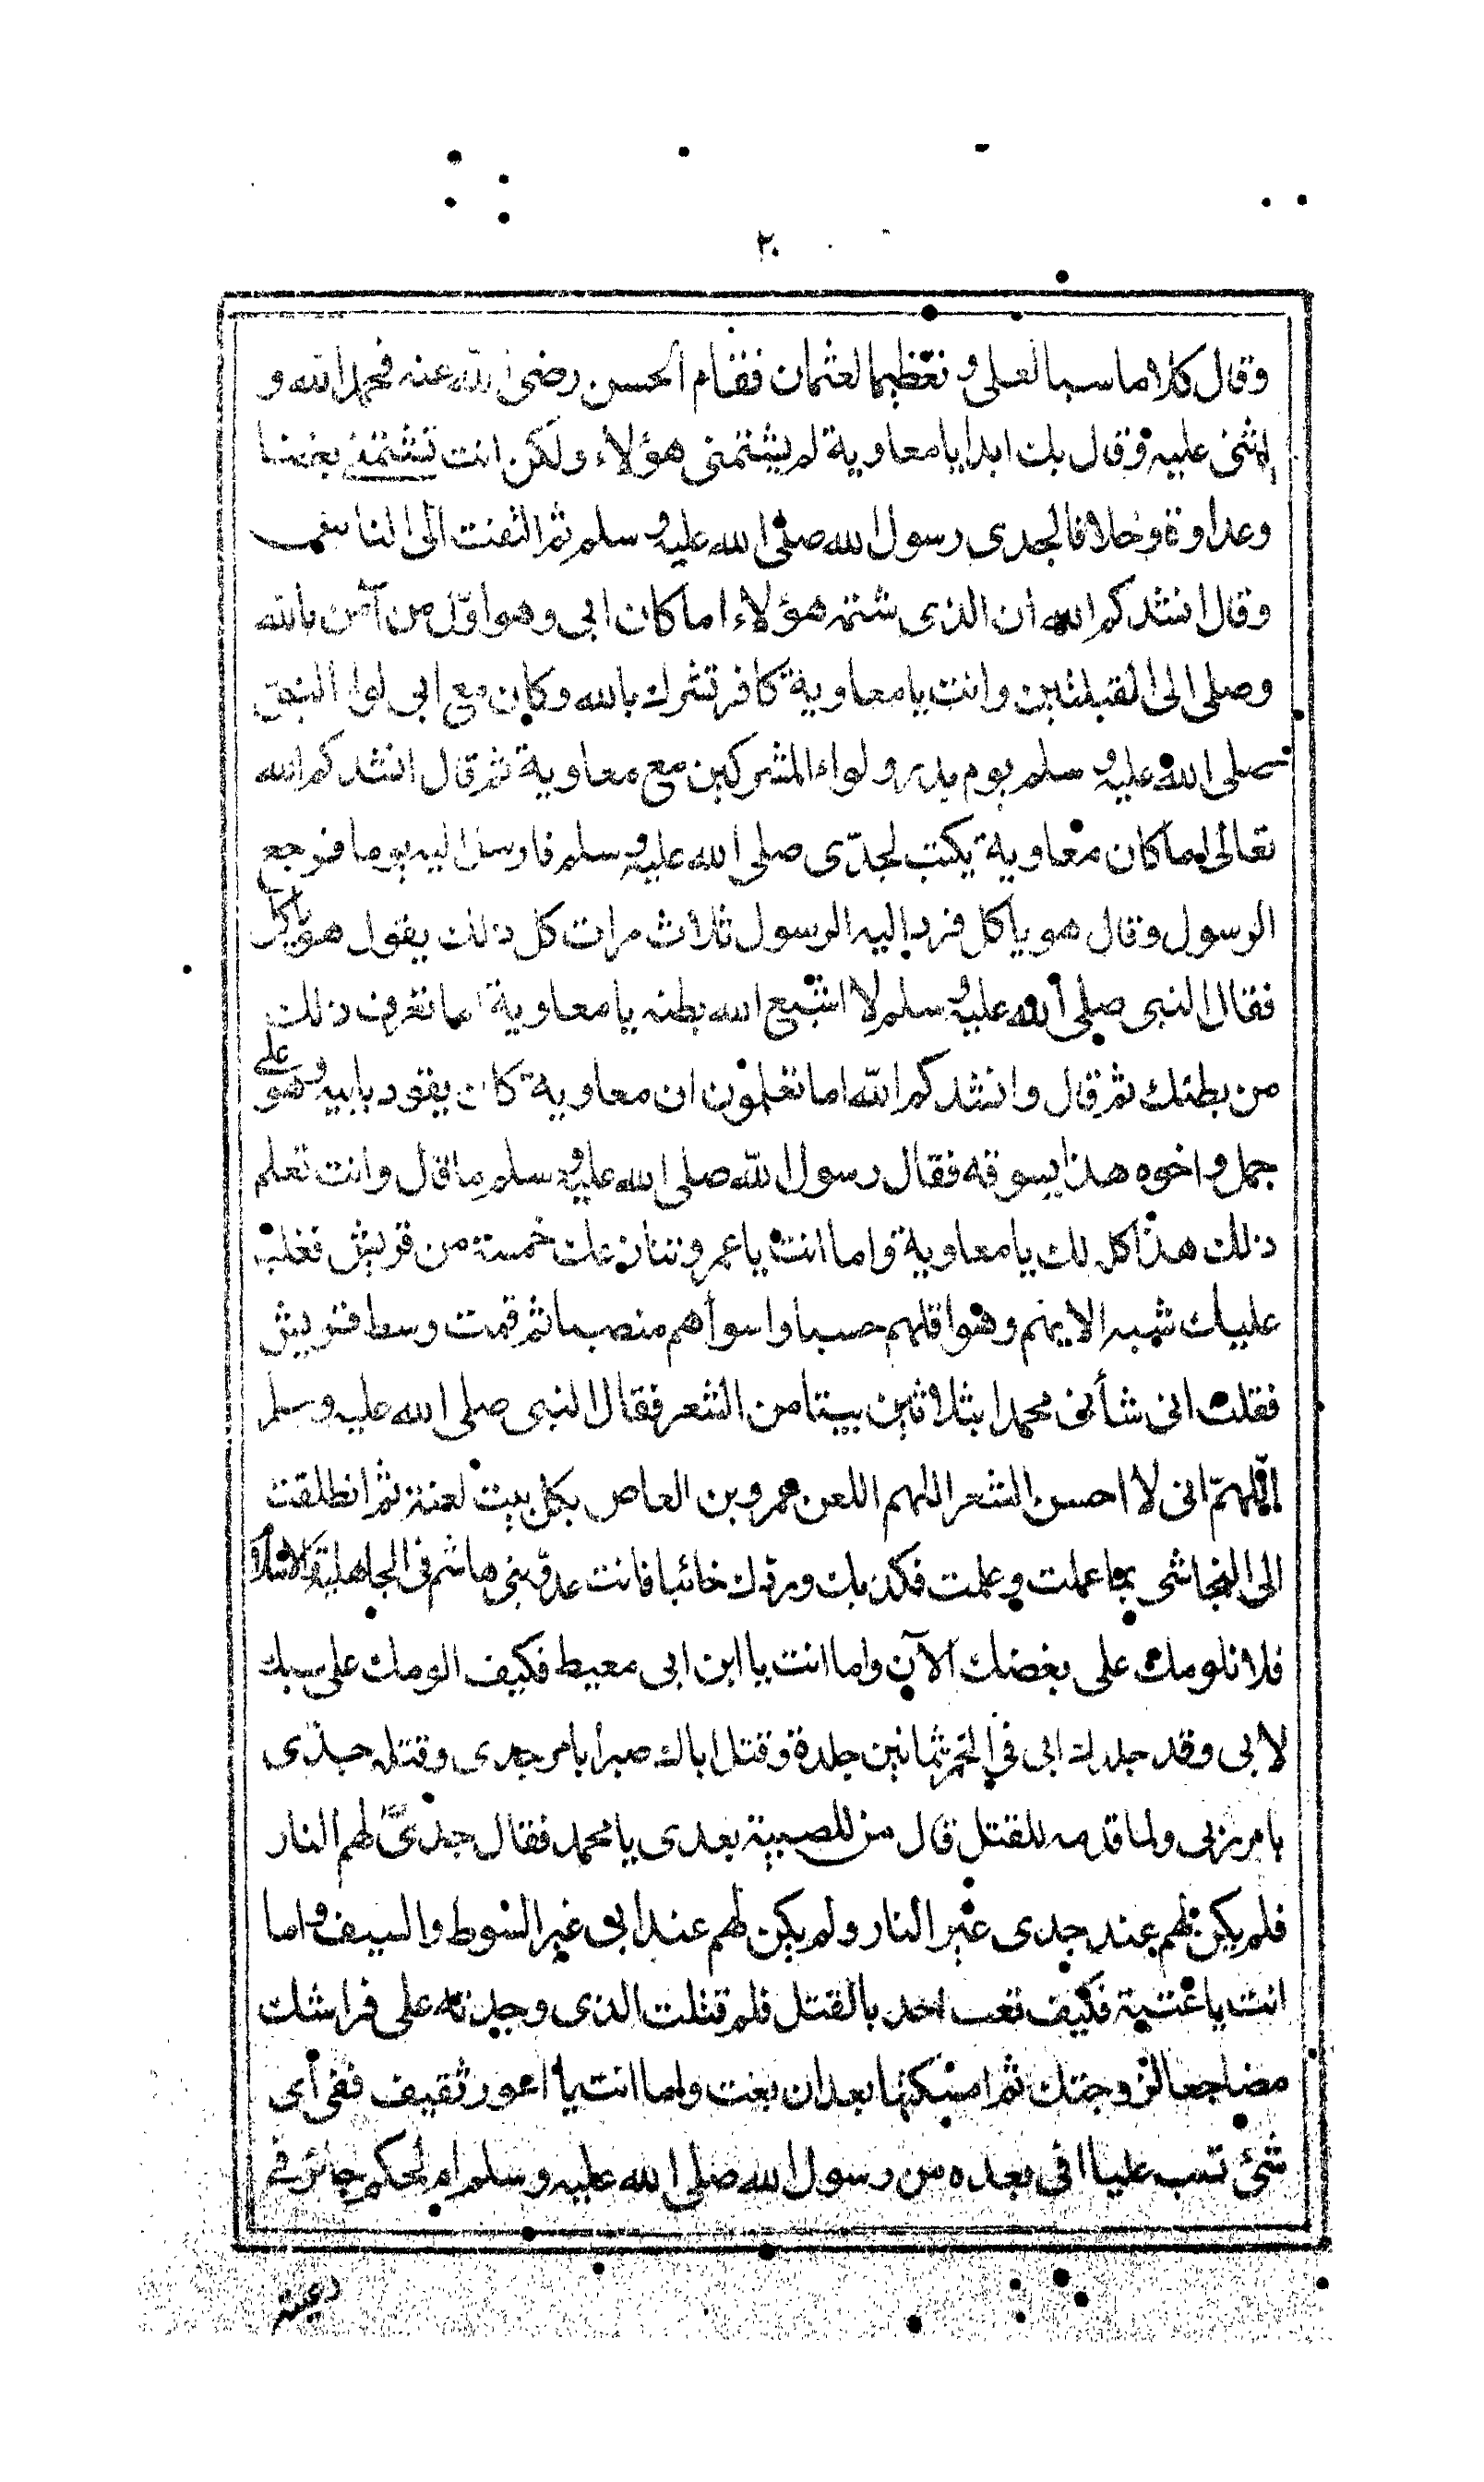 ٢٠
وقال كلاما سبا لعلى و تعظيما لعثمان فقام الحسن رضى الله عنه فحمد الله و
اثنى عليه وقال بك ابدا يا معاوية لم يشتمنى هؤلاء ولكن انت تشتمنى بغضا
وعداوة وخلافا لجدى رسول الله صلى الله عليه وسلم ثم التفت الى الناس
وقال انشدكم الله ان الذى شتمه هؤلاء اما كان ابى وهو اوّل من آمن بالله
وصلى الى القبلتين وانت يا معاوية كافر تشرك بالله وكان مع ابى لواء النبى
صلى الله عليه وسلم يوم بدر ولواء المشركين مع معاوية ثم قال انشدكم الله
تعالى اما كان معاوية يكتب لجدّى صلى الله عليه وسلم فارسل اليه يوما فرجع
الرسول وقال هو يأكل فرد اليه الرسول ثلاث مرات كل ذلك يقول هو يأكل
فقال النبى صلى الله عليه وسلم لا اشبع الله بطنه يا معاوية اما تعرف ذلك
من بطنك ثم قال وانشدكم الله اما تعلمون ان معاوية كان يقود بابيه وهو على
جمل واخوه هذا يسوقه فقال رسول الله صلى الله عليه وسلم ما قال وانت تعلم
ذلك هذا كل لك يا معاوية واما انت يا عمرو تنازعك خمسة من قريش فغلب
عليك شبه الايهم وهو اقلهم حسبا واسوأهم منصبا ثم قمت وسط قريش
فقلت انى شأنى محمدا بثلاثين بيتا من الشعر فقال النبى صلى الله عليه وسلم
اللهمّ انى لا احسن الشعر اللهم اللعن عمرو بن العاص بكل بيت لعنة ثم انطلقت
الى النجاشى بما عملت وعلمت فكذبك وردّك خائبا فانت عدوّ بنى هاشم فى الجاهلية والاسلام
فلا نلومك على بغضك الآن واما انت يا ابن ابى معيط فكيف الومك على سبك
لابى وقد جلدك ابى فى الخمر ثمانين جلدة وقتل اباك صبرا بامر جدى وقتله جدّى
بامر ربى ولما قدمه للقتل قال من للصبية بعدى يا محمد فقال جدىّ لهم النار
فلم يكن لهم عند جدى غير النار ولم يكن لهم عند ابى غير السوط والسيف واما
انت يا عتبة فكيف تعب احد بالقتل فلم قتلت الذى وجدته على فراشك
مضاجعا لزوجتك ثم امسكتها بعد ان بغت واما انت يا اعور ثقيف ففى أى
شئ تسب عليا افى بعده من رسول الله صلى الله عليه وسلم ام لحكم جائر فى